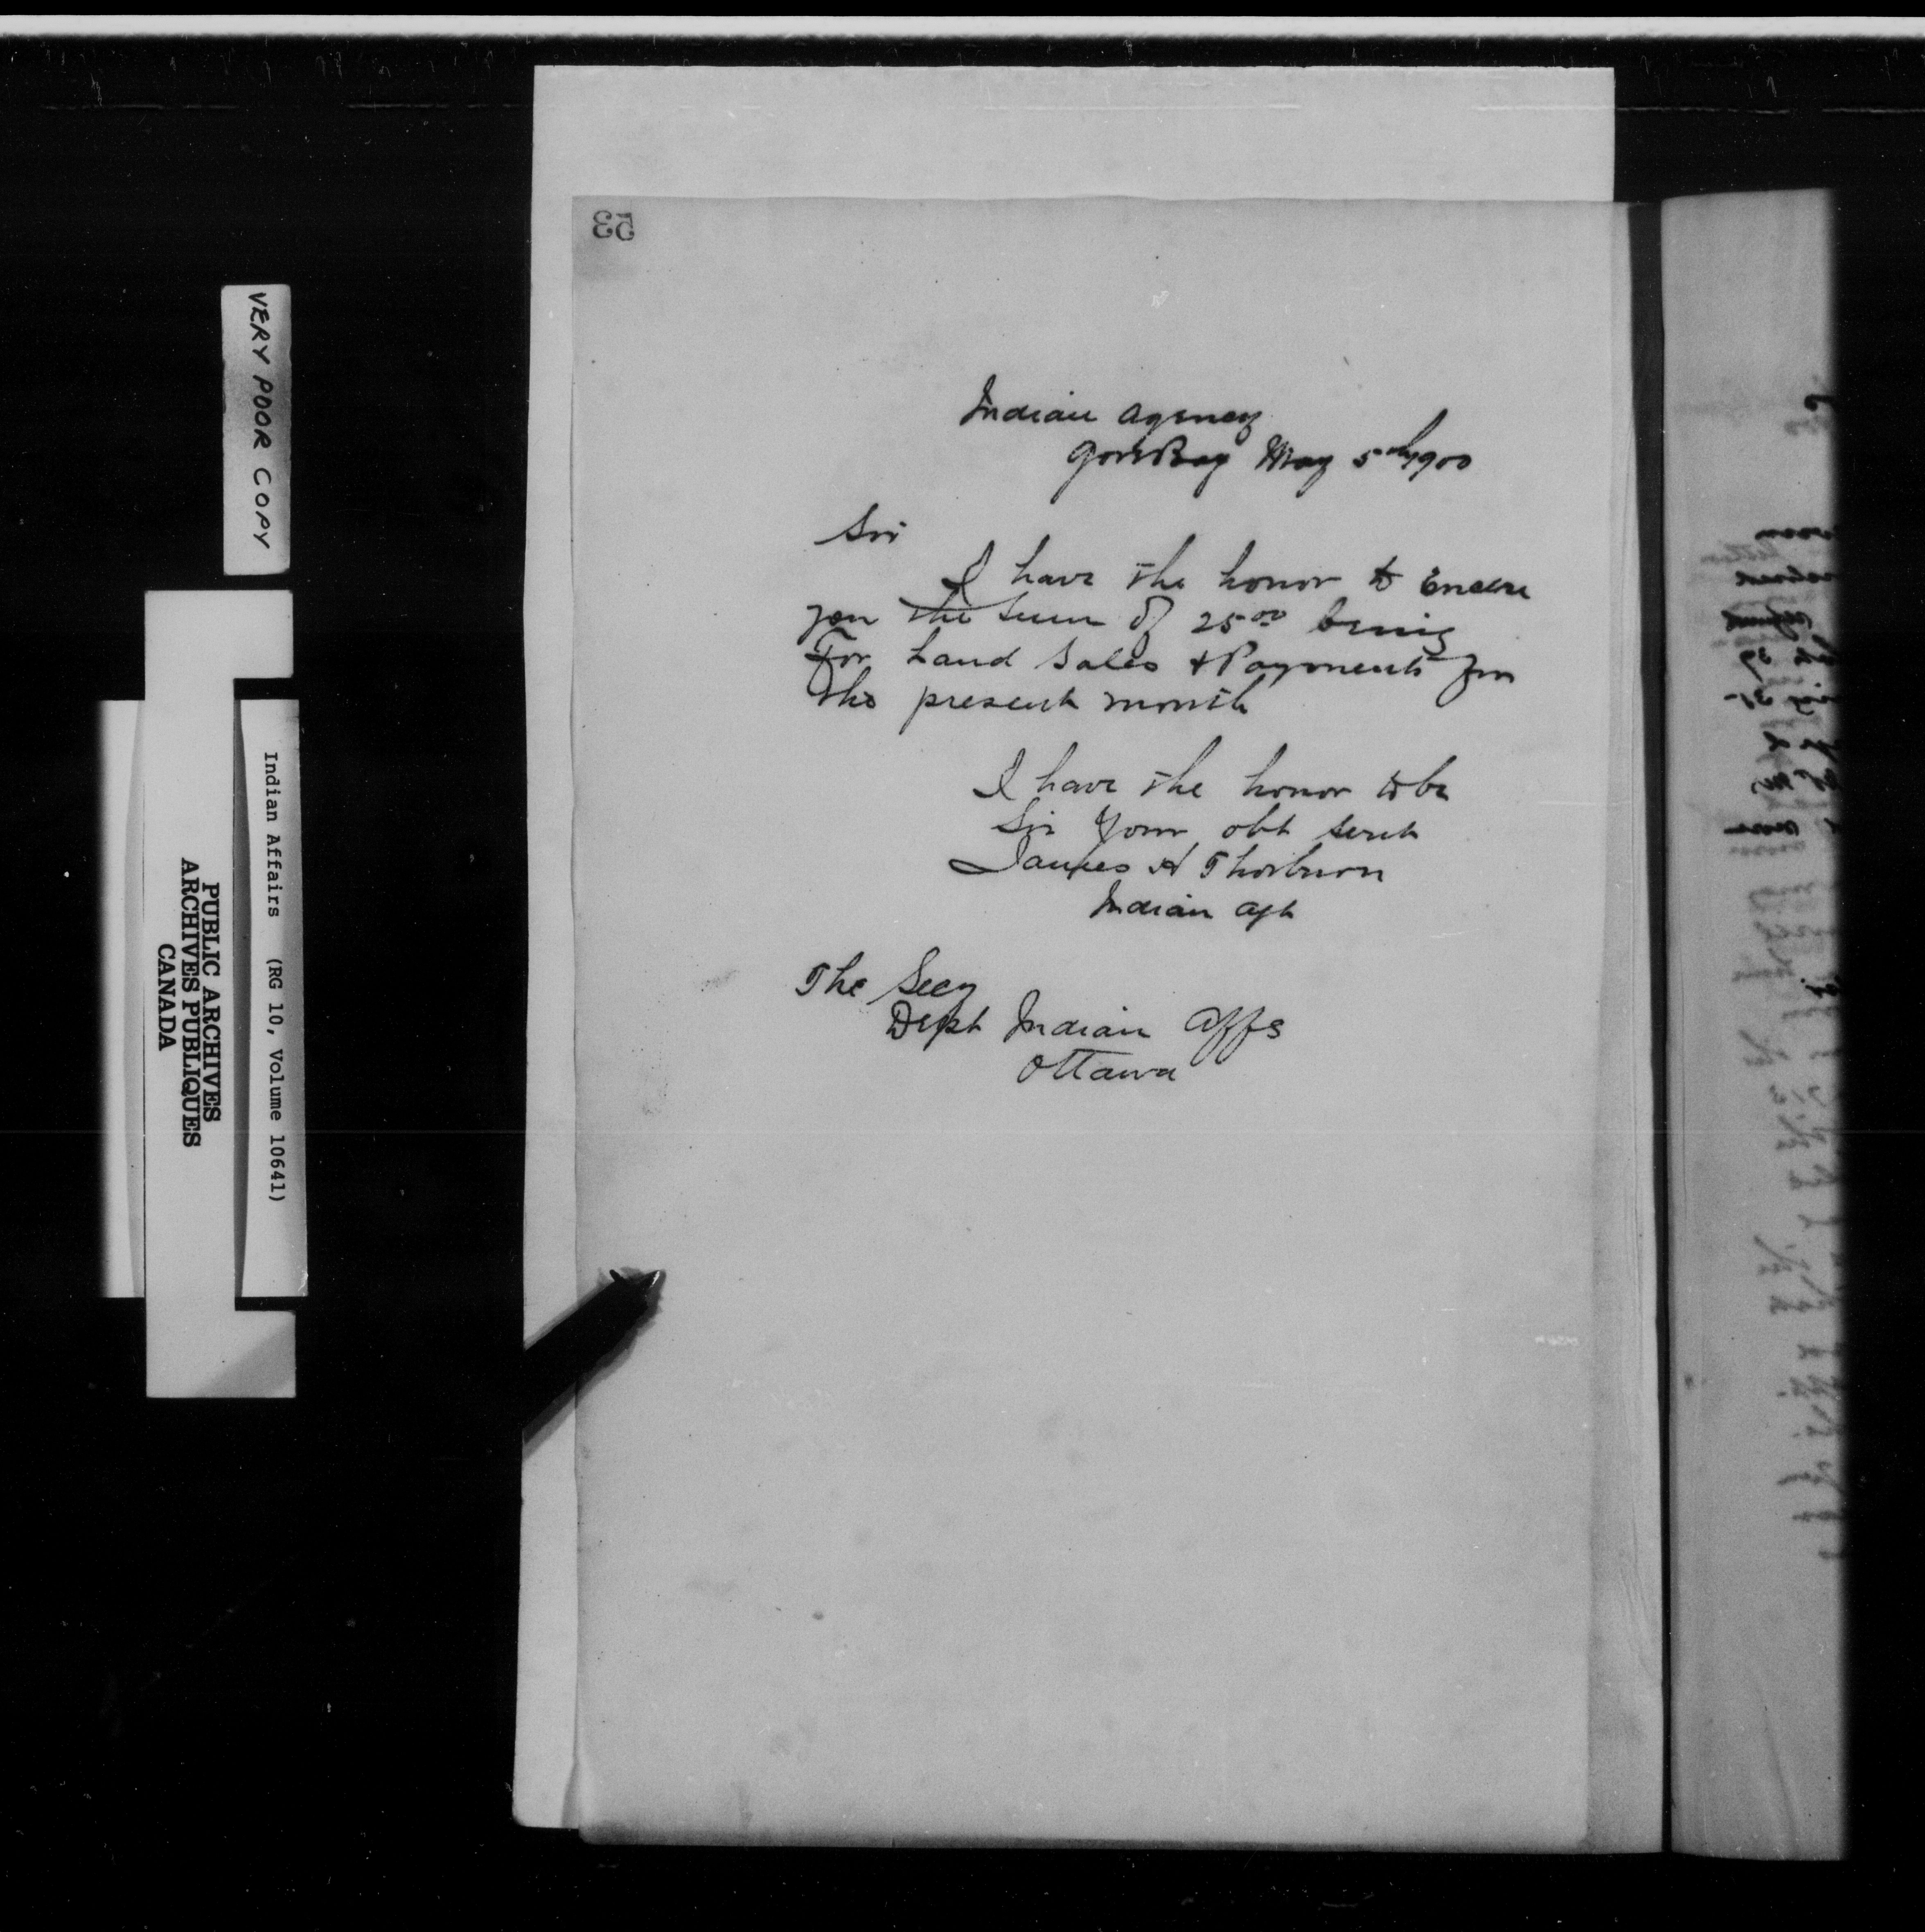 53
Indian Agency
Gore Bay May 5th 1900
Sir
I have the honor to Enclose
you the sum of 25 00 being
For Land Sales & Payments for
the present month
I have the honor to be
Sir Your obt servt
James H Thorburn
Indian Agt
The Secy
Dept Indian Affs
Ottawa
VERY POOR COPY
Indian Affairs (RG 10, Volume 10641)
PUBLIC ARCHIVES
ARCHIVES PUBLIQUES
CANADA